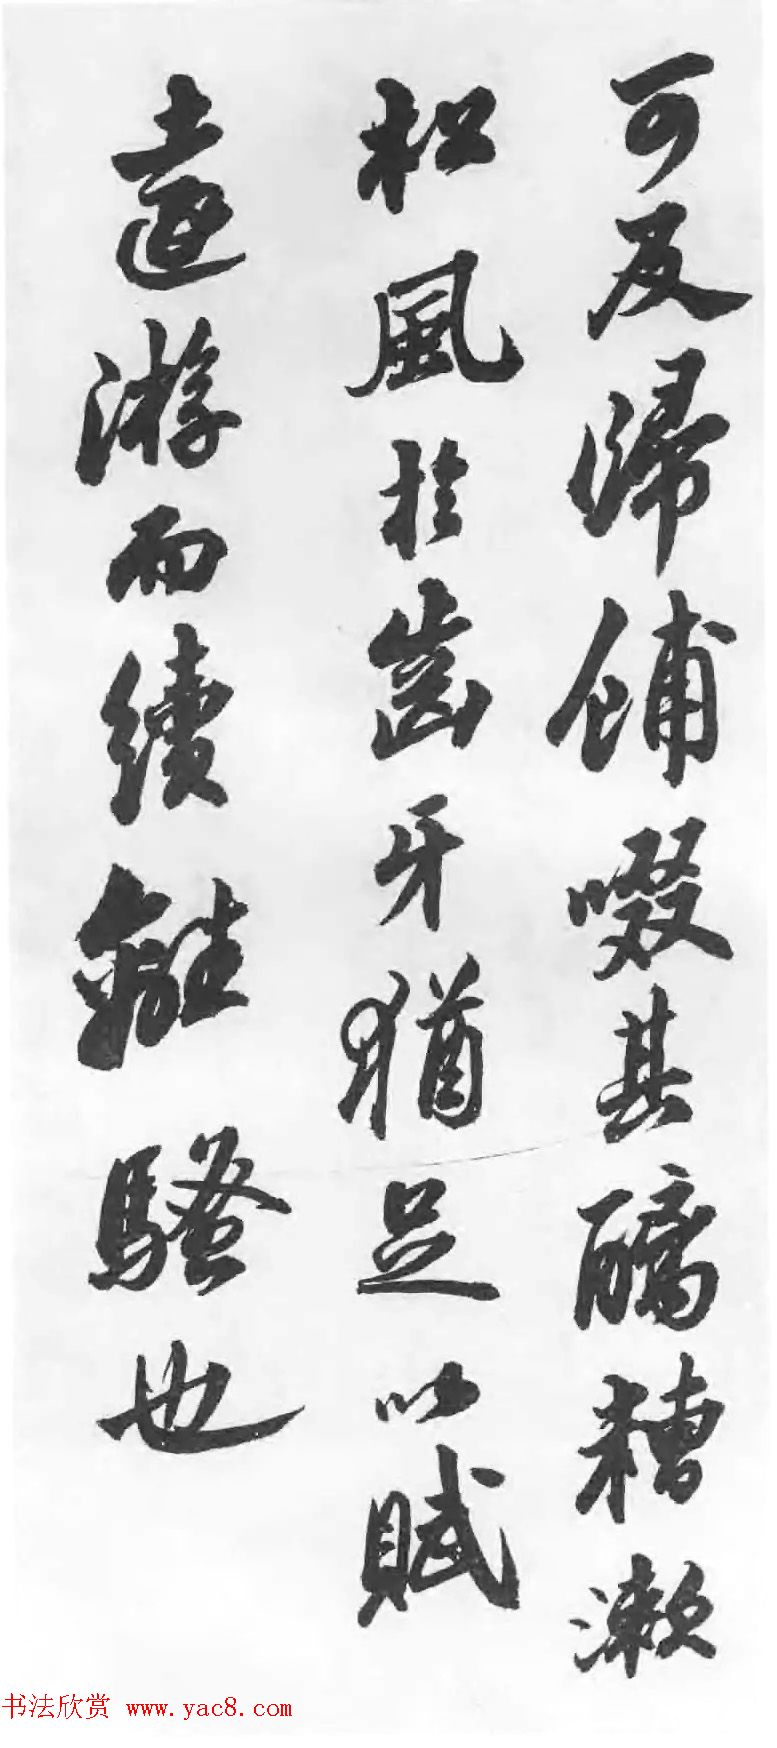 可反歸餔啜其醨糟漱
松風於齒牙猶足以賦
遠游而續離騷也
书法欣赏 www.yac8.com